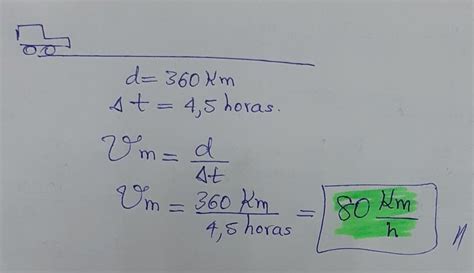 d = 360 Km
Δt = 4,5 horas.
Vm = d/Δt
Vm = 360 Km/4,5 horas = 80 Km/h